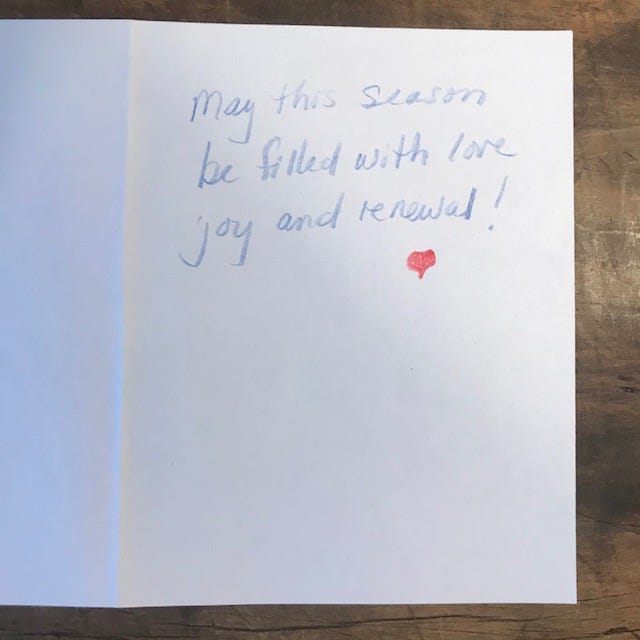 May this season
be filled with love
joy and renewal!